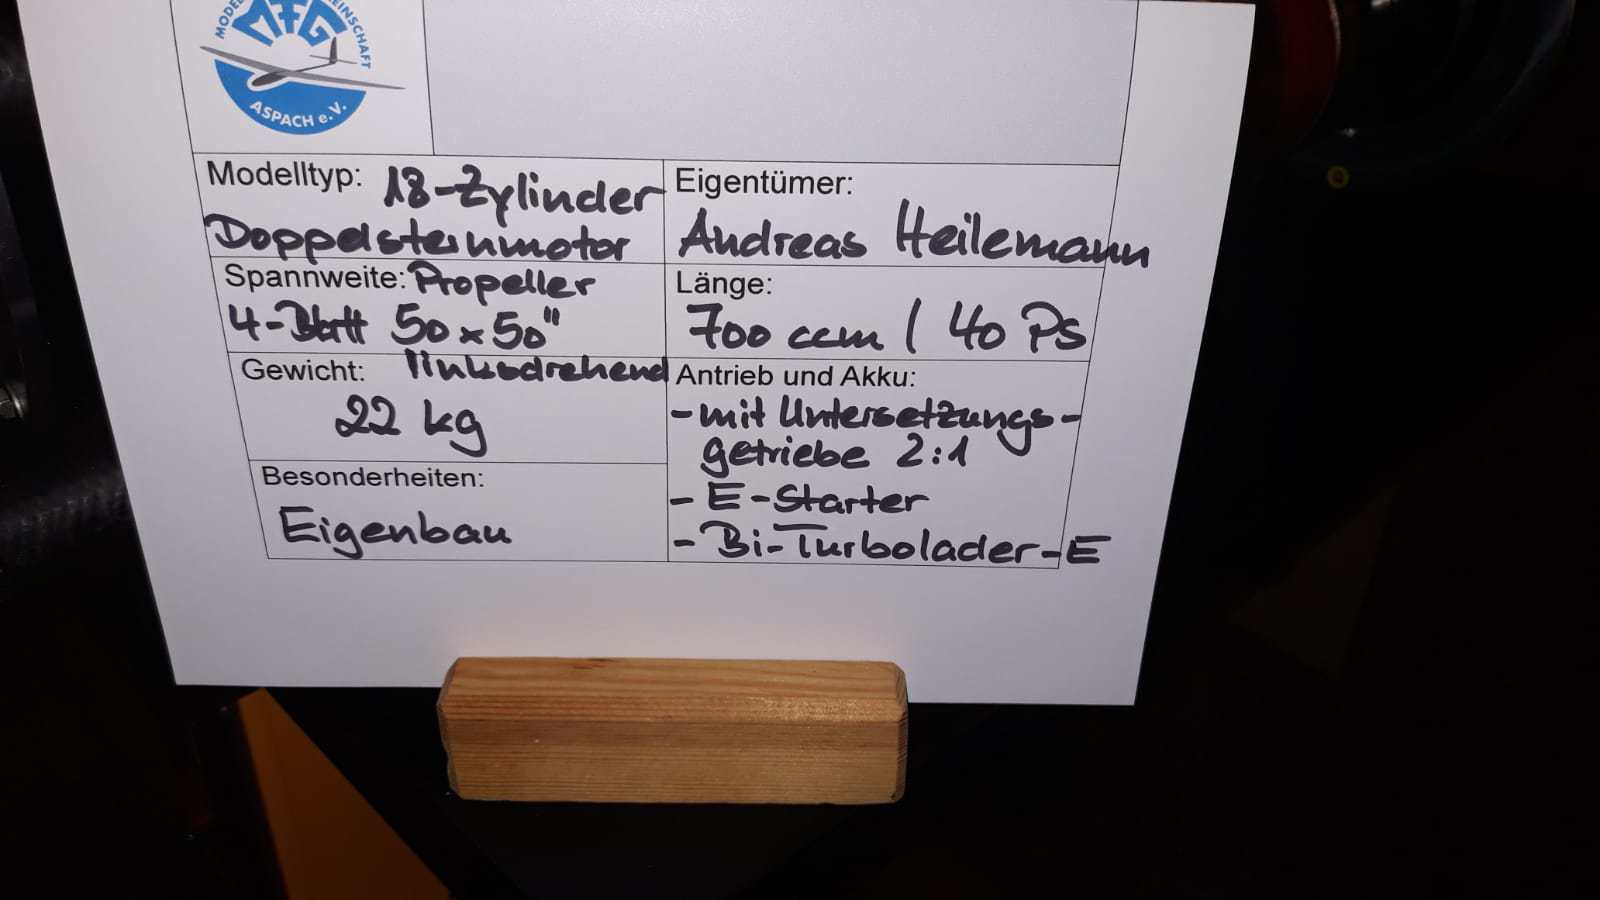 MFG
ASPACH e.V.
Modelltyp: 18-Zylinder
Doppelsternmotor
Eigentümer:
Andreas Heilemann
Spannweite: Propeller
4-Blatt 50x50"
linksdrehend
Länge:
700 ccm / 40 PS
Gewicht:
22 kg
Antrieb und Akku:
- mit Untersetzungs-
getriebe 2:1
- E-Starter
- Bi-Turbolader-E
Besonderheiten:
Eigenbau